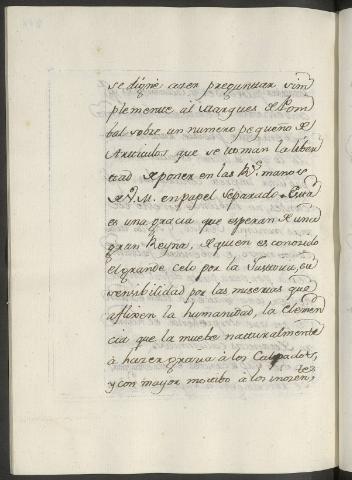 se digne aser preguntar sim
plemente al Marques de Pom
bal sobre un numero pequeño de
Articulos que se toman la liber
tad de poner en las Rs. manos
de V. M. en papel separado. Esta
es una gracia que esperan de una
gran Reyna, de quien es conosido
el grande celo por la Justicia, su
sensibilidad por las miserias que
aflixen la humanidad, la Clemen
cia que la muebe naturalmente
à hazer gracia à los Culpados,
y con mayor motibo à los inosen,
tes